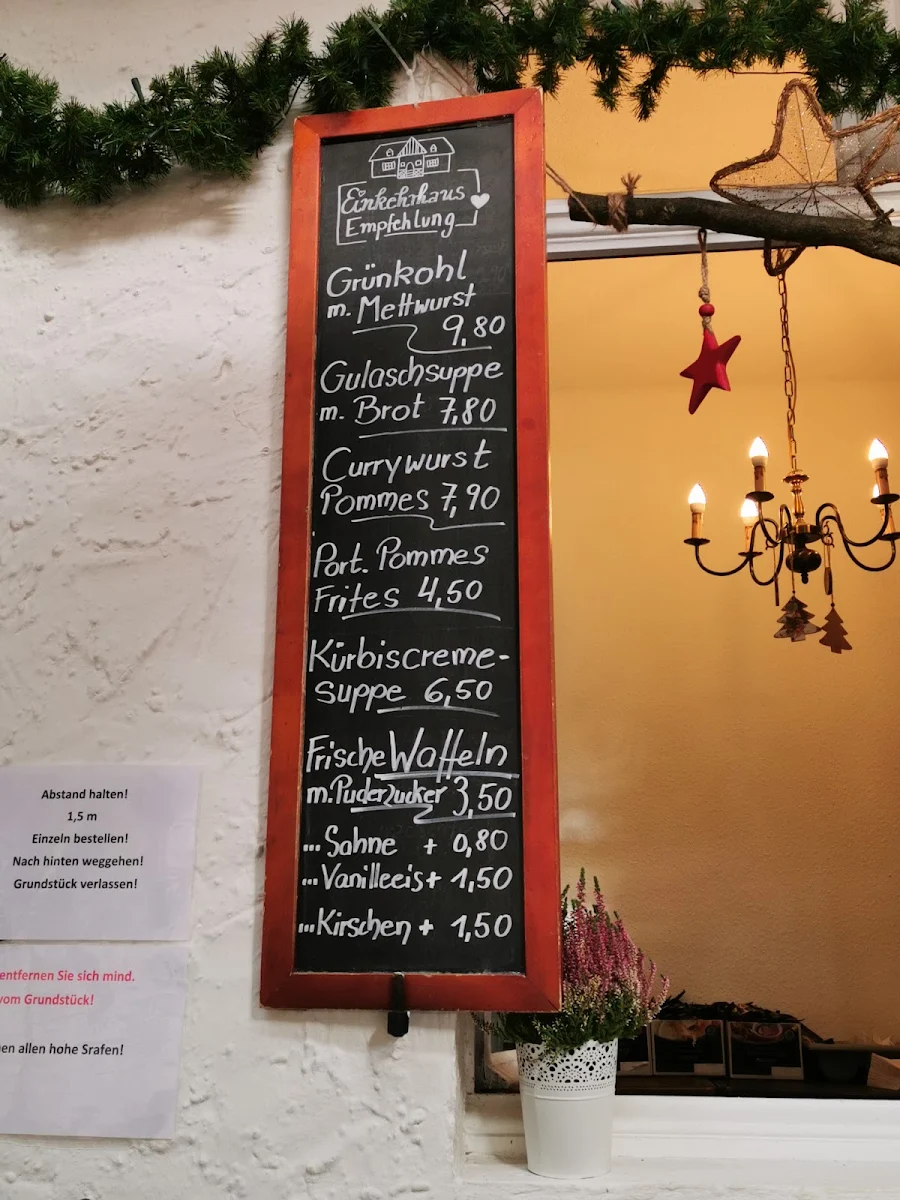 Einkehrhaus
Empfehlung
Grünkohl
m. Mettwurst
9,80
Gulaschsuppe
m. Brot 7,80
Currywurst
Pommes 7,90
Port. Pommes
Frites 4,50
Kürbiscreme-
suppe 6,50
Frische Waffeln
m. Puderzucker 3,50
...Sahne + 0,80
...Vanilleeis + 1,50
...Kirschen + 1,50
Abstand halten!
1,5 m
Einzeln bestellen!
Nach hinten weggehen!
Grundstück verlassen!
entfernen Sie sich mind.
vom Grundstück!
en allen hohe Srafen!